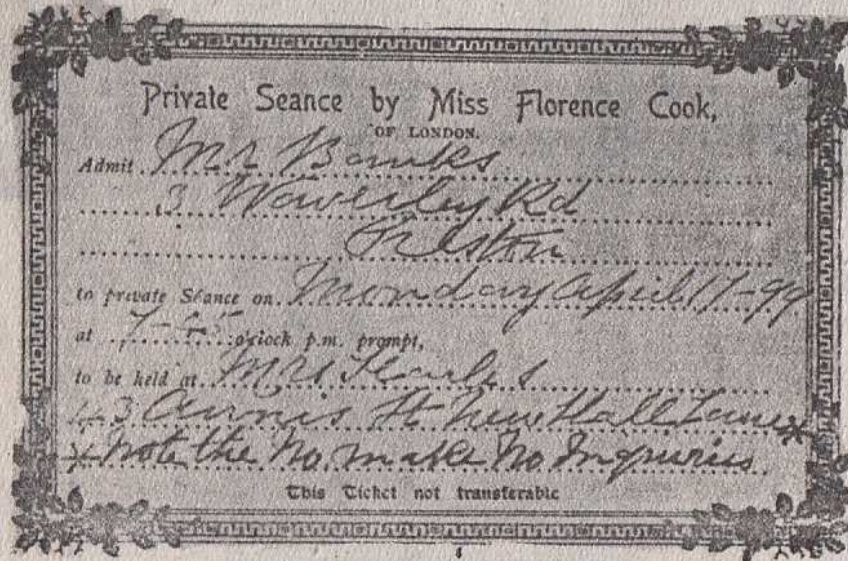 Private Seance by Miss Florence Cook,
OF LONDON.
Admit Mr Banks
3 Waverley Rd
Preston
to private Séance on Monday April 17-99
at 7-45 o'clock p.m. prompt,
to be held at Mrs
43 St New Hall Lane x
x Note the No make No Inquiries
This Ticket not transferable